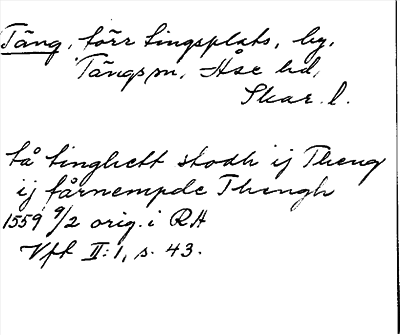 Täng, förr tingsplats, by,
Tängs sn, Åse hd,
Skar. l.
tå tinghett stodh ij Theng
ij fårnempde Thengh
1559 9/2 orig. i RA
Vft II:1, s. 43.